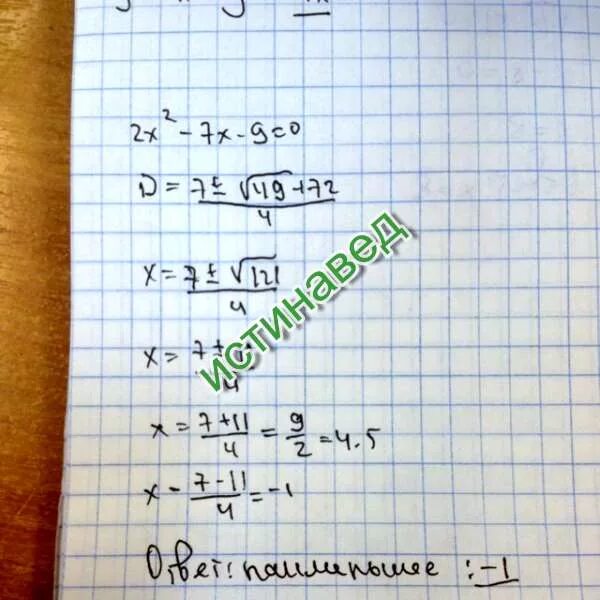 2x² - 7x - 9 = 0
D = 7 ± √49 + 72 / 4
x = 7 ± √121 / 4
x = 7 ± / 4
x = 7 + 11 / 4 = 9 / 2 = 4.5
x - 7 - 11 / 4 = -1
Ответ: наименьшее : -1
истинавед